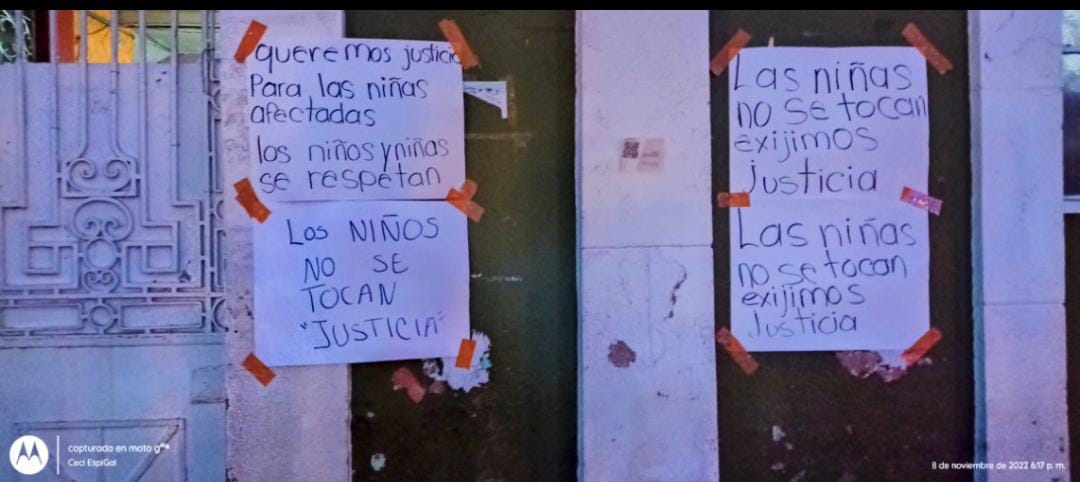 queremos justicia
Para las niñas
afectadas
los niños y niñas
se respetan
LOS NIÑOS
NO SE
TOCAN
"JUSTICIA"
Las niñas
no se tocan
exijimos
justicia
Las niñas
no se tocan
exijimos
Justicia
capturada en moto g
Ceci EspiGal
8 de noviembre de 2022 6:17 p. m.